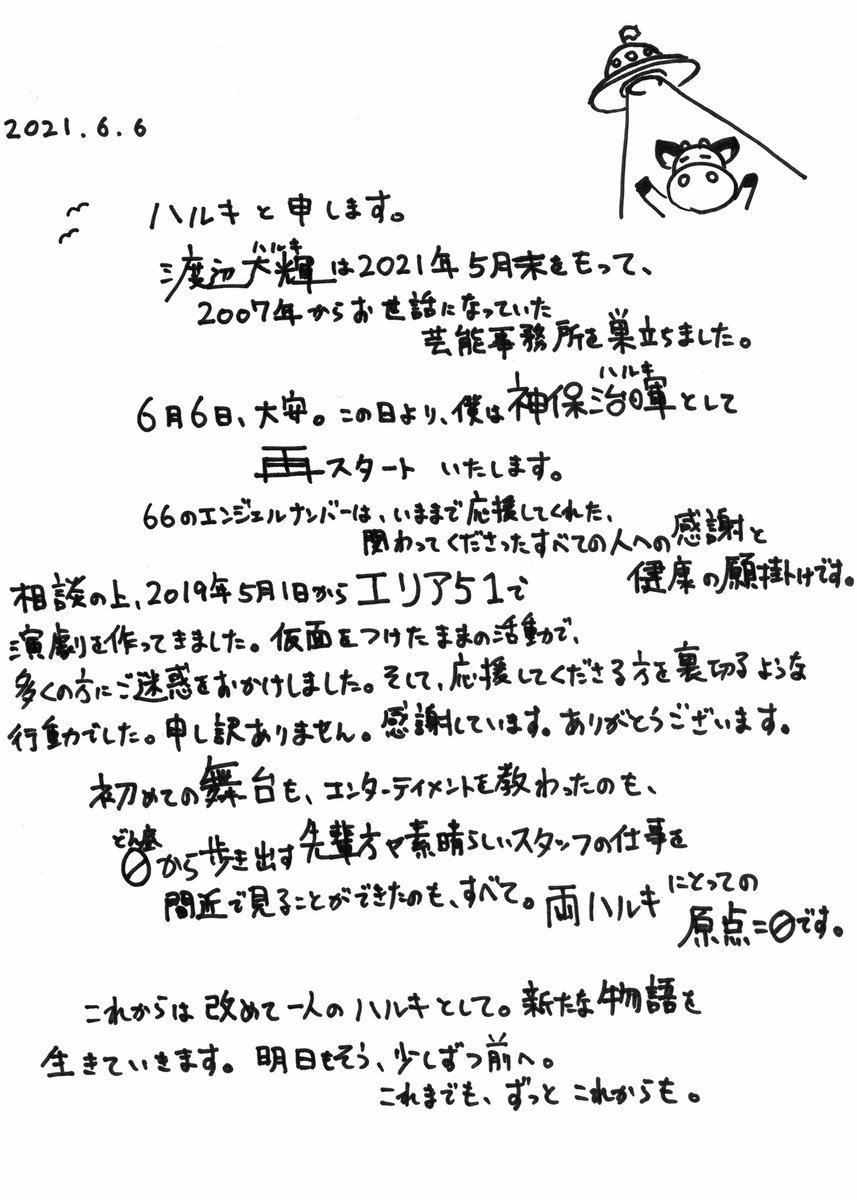 2021.6.6
ハルキと申します。
渡辺大輝は2021年5月末をもって、
ハルキ
2007年からお世話になっていた
芸能事務所を巣立ちました。
ハルキ
6月6日、大安。この日より、僕は神保治暉として
再スタートいたします。
66のエンジェルナンバーは、いままで応援してくれた、
関わってくださったすべての人への感謝と
健康の願掛けです。
相談の上、2019年5月1日からエリア51で
演劇を作ってきました。仮面をつけたままの活動で、
多くの方にご迷惑をおかけしました。そして、応援してくださる方を裏切るような
行動でした。申し訳ありません。感謝しています。ありがとうございます。
初めての舞台も、エンターティメントを教わったのも、
どん底
0から歩き出す先輩方や素晴らしいスタッフの仕事を
間近で見ることができたのも、すべて。両ハルキにとっての
原点=0です。
これからは改めて一人のハルキとして。新たな物語を
生きていきます。明日もそう、少しずつ前へ。
これまでも、ずっとこれからも。